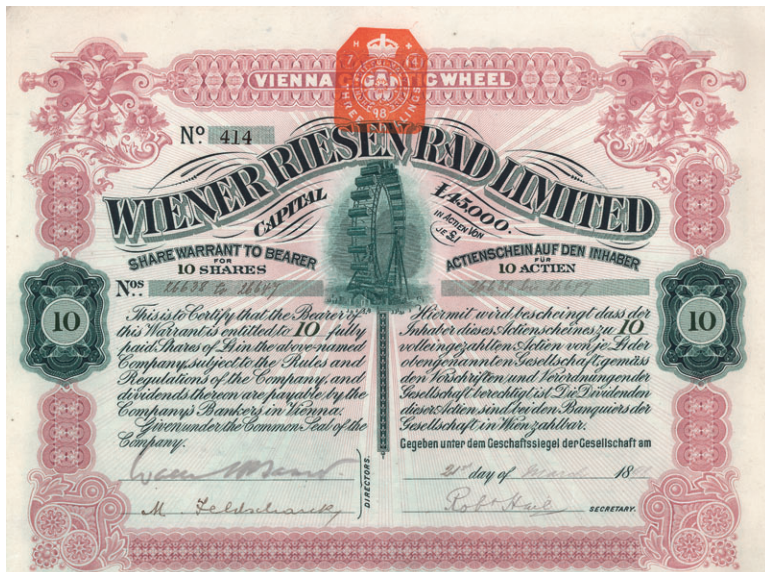 VIENNA GIGANTIC WHEEL
H
THREE SHILLINGS
98
Nº 414
WIENER RIESEN RAD LIMITED
CAPITAL £45,000.
IN ACTIEN VON
JE £1
SHARE WARRANT TO BEARER
FOR
10 SHARES
ACTIENSCHEIN AUF DEN INHABER
FÜR
10 ACTIEN
Nos. 26638 to 26647
26638 bis 26647
10
10
This is to Certify that the Bearer of
this Warrant is entitled to 10 fully
paid Shares of £1 in the above named
Company, subject to the Rules and
Regulations of the Company, and
dividends thereon are payable by the
Company's Bankers in Vienna.
Given under the Common Seal of the
Company.
Hiermit wird bescheinigt dass der
Inhaber dieses Actienscheines zu 10
volleingezahlten Actien von je £1 der
obengenannten Gesellschaft, gemäss
den Vorschriften und Verordnungen der
Gesellschaft berechtigt ist. Die Dividenden
dieser Actien sind bei den Banquiers der
Gesellschaft in Wien zahlbar.
Gegeben unter dem Geschaftssiegel der Gesellschaft am
21st day of March 18
DIRECTORS.
M Feldscharek
Robt Hail
SECRETARY.